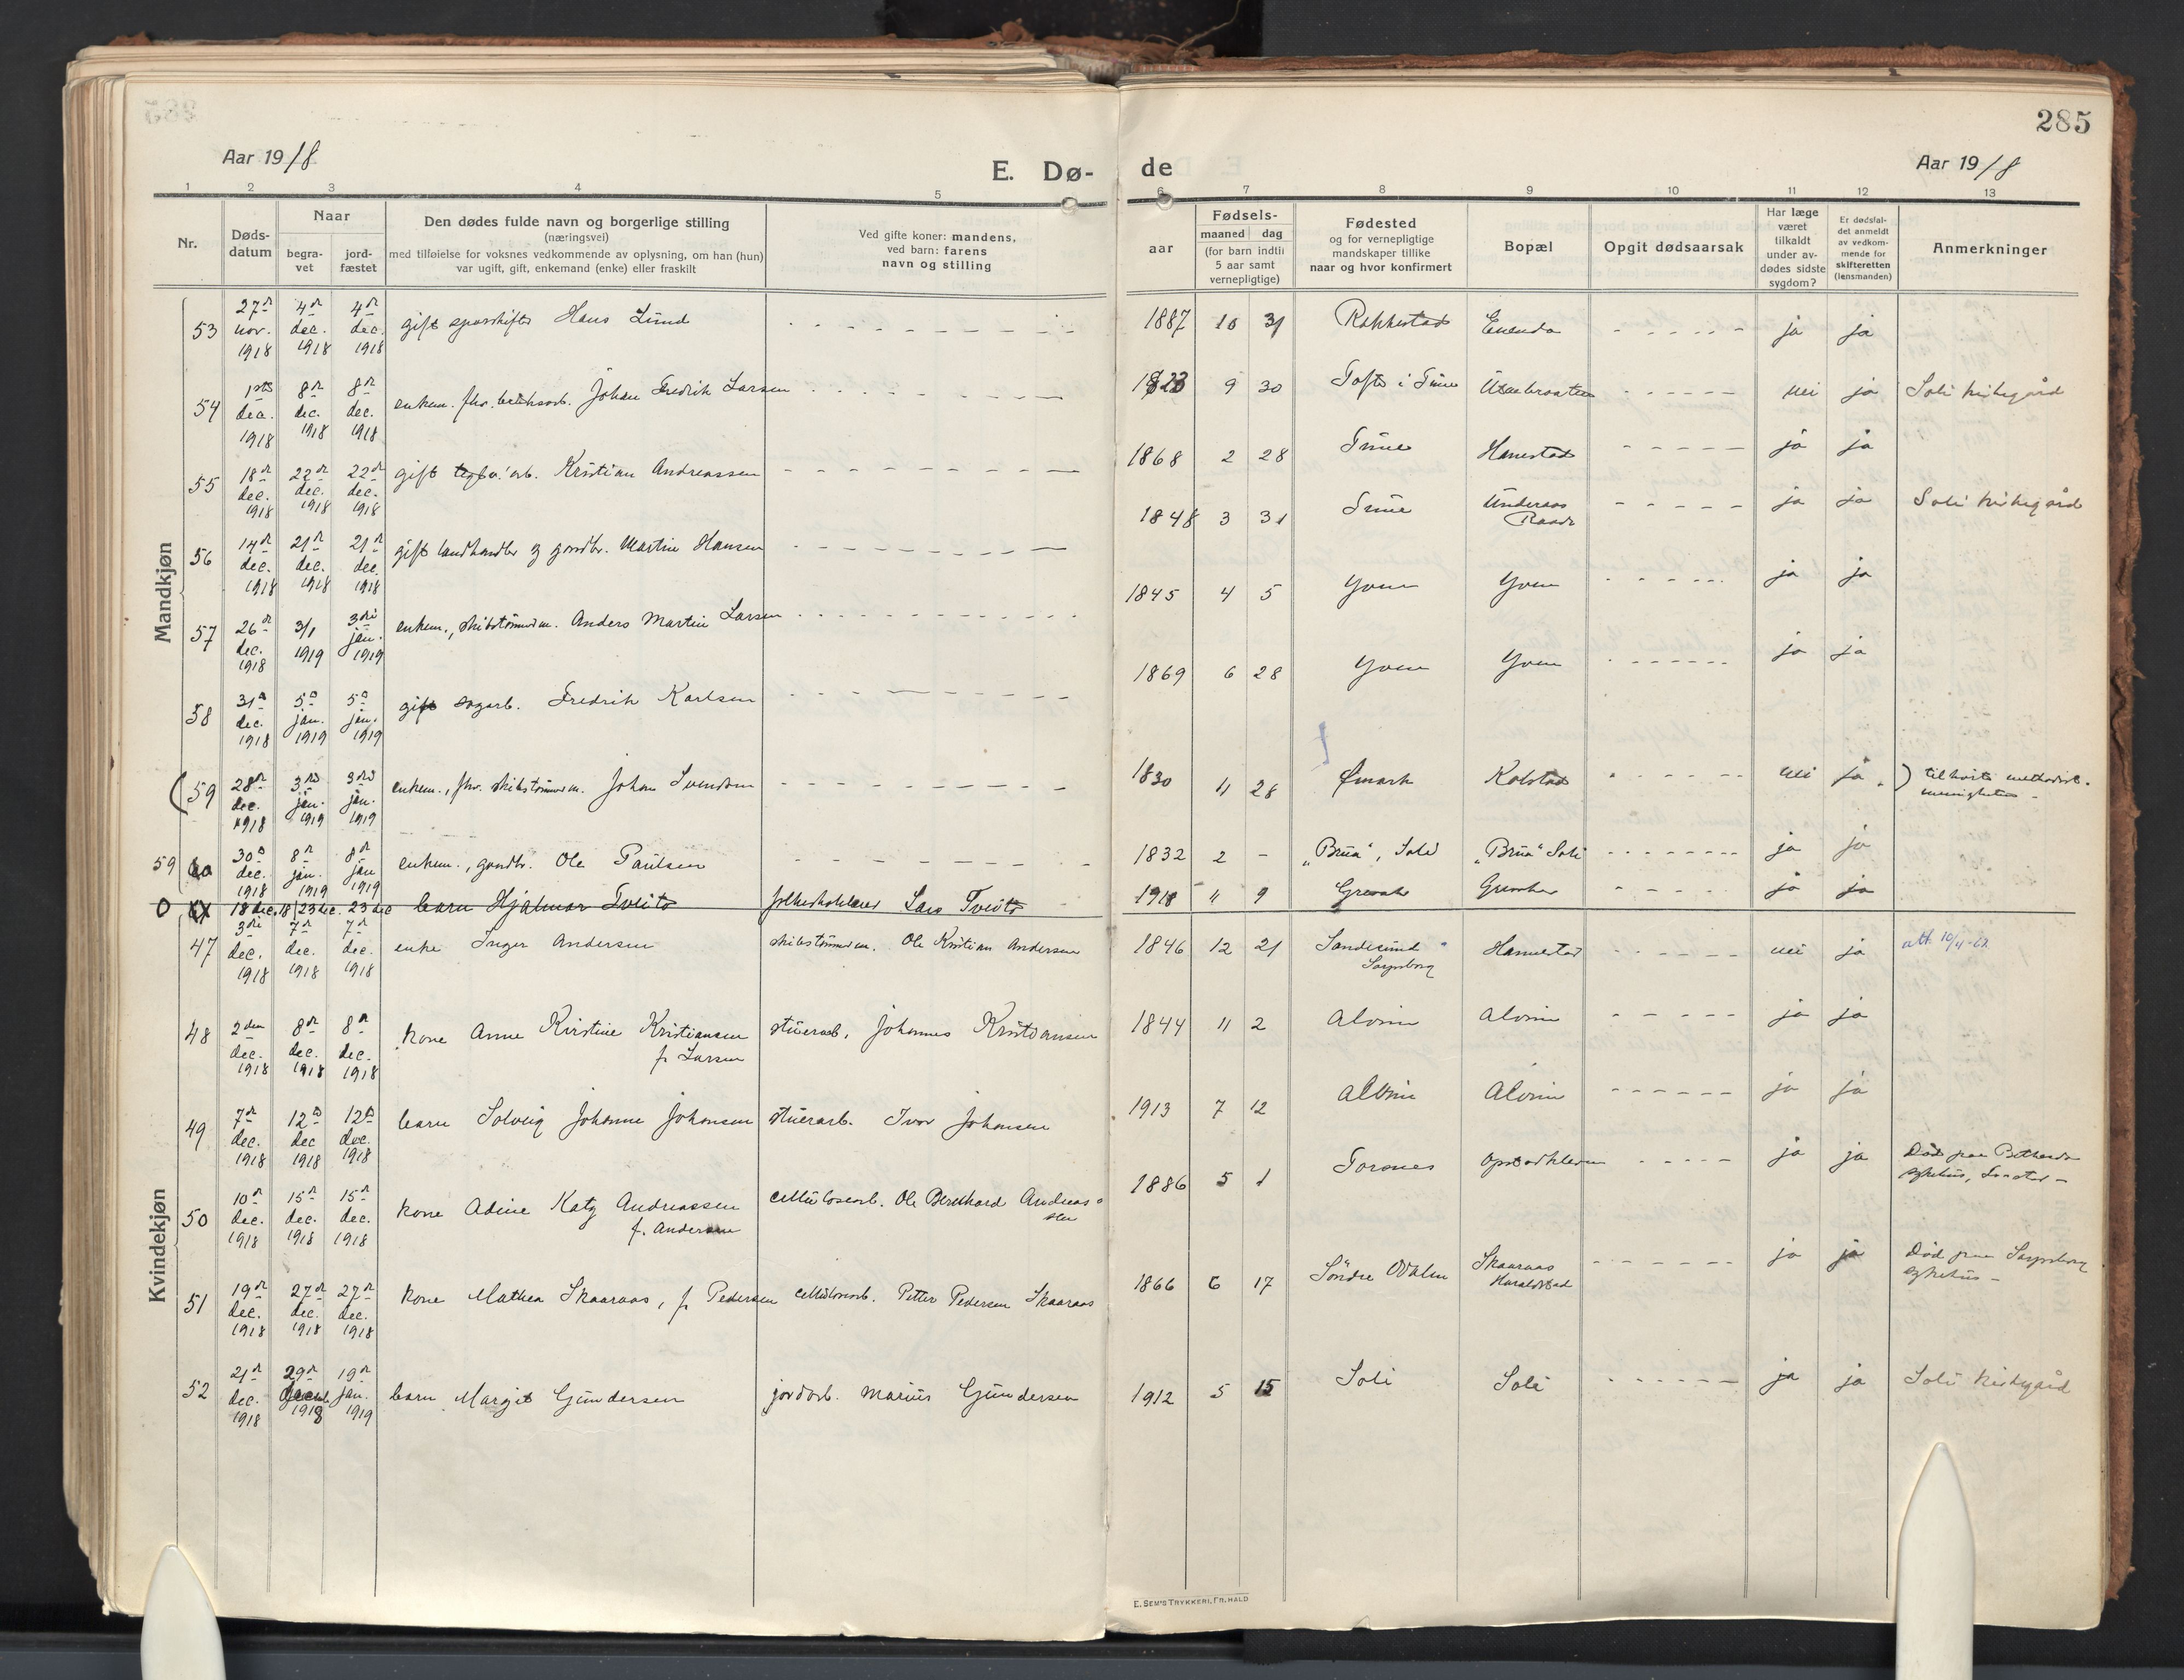 285
Aar 1918
E. Dø-
de
Aar 1918
1 2 3 4 5 6 7 8 9 10 11 12 13
Nr.
Døds-
datum
Naar
begra-
vet
jord-
fæstet
Den dødes fulde navn og borgerlige stilling
(næringsvei)
med tilføielse for voksnes vedkommende av oplysning, om han (hun)
var ugift, gift, enkemand (enke) eller fraskilt
Ved gifte koner: mandens,
ved barn: farens
navn og stilling
aar
Fødsels-
maaned dag
(for barn indtil
5 aar samt
vernepligtige)
Fødested
og for vernepligtige
mandskaper tillike
naar og hvor konfirmert
Bopæl
Opgit dødsaarsak
Har læge
været
tilkaldt
under av-
dødes sidste
sygdom?
Er dødsfal-
det anmeldt
av vedkom-
mende for
skifteretten
(lensmanden)
Anmerkninger
Mandkjøn
53 27de nov. 1918 4de dec. 1918 4de dec. 1918 gift Hans Lund 1887 10 31 Rakkestad Enenda ja ja
54 1ste dec. 1918 8de dec. 1918 8de dec. 1918 enkem. fhv. Johan Fredrik Larsen 9 30 Tofte i Tune nei ja Soli kirkegård
55 18de dec. 1918 22de dec. 1918 22de dec. 1918 gift teglv.arb. Kristian Andreassen 1868 2 28 Tune Hanestad ja ja
56 14de dec. 1918 21de dec. 1918 21de dec. 1918 gift landhandler og gaardbr. Martin Hansen 1848 3 31 Tune Underaas Raade ja ja Soli kirkegård
57 26de dec. 1918 3/1 1919 3die jan. 1919 enkem., skibstømmerm. Anders Martin Larsen 1845 4 5 Yven Yven ja ja
58 31te dec. 1918 5te jan. 1919 5te jan. 1919 gift sagarb. Fredrik Karlsen 1869 6 28 Yven Yven ja ja
(59 28de dec. 1918 3die jan. 1919 3die jan. 1919 enkem., fhv. skibstømmerm. Johan Svendsen 1830 11 28 Ømark Kolstad nei ja.) tilhørte methodist-
menigheten -
59 60 30te dec. 1918 8de jan. 1919 8de jan 1919 enkem., gaardbr. Ole Paulsen 1832 2 - "Brua", Soli "Brua" Soli ja ja
0 18 dec. 18 23 dec. 23 dec barn Hjalmar Tveito Lars Tveito 1918 11 9 ja ja
Kvindekjøn
47 3die dec. 1918 7de dec. 1918 7de dec. 1918 enke Inger Andersen skibstømmerm. Ole Kristian Andersen 1846 12 21 Sandesund Sarpsborg Hannestad nei ja att. 10/4-62
48 2den dec. 1918 8de dec. 1918 8de dec. 1918 kone Anne Kirstine Kristiansen
f. Larsen stuerarb. Johannes Kristiansen 1844 11 2 Alvim Alvim ja ja
49 7de dec. 1918 12te dec 1918 12te dec. 1918 barn Solveig Johanne Johansen stuerarb. Ivar Johansen 1913 7 12 Alvim Alvim ja ja
50 10de dec. 1918 15de dec. 1918 15de dec. 1918 kone Adine Katz Andreassen
f. Andersen cellulosearb. Ole Bernhard Andreas-
sen 1886 5 1 Torsnes Opstadkleven ja ja Død paa Bethesda
sykehus,
51 19de dec. 1918 27de dec. 1918 27de dec. 1918 kone Mathea Skaaraas, f. Pedersen cellulosearb. Petter Pedersen Skaaraas 1866 6 17 Søndre Odalen Skaaraas Haraldstad ja ja Død paa Sarpsborg
sykehus -
52 21de dec. 1918 29de decemb. 1918 19de jan. 1919 barn Margit Gundersen jordarb. Marius Gundersen 1912 5 15 Soli Soli ja ja Soli kirkegård
E. SEM'S TRYKKERI, FR.HALD